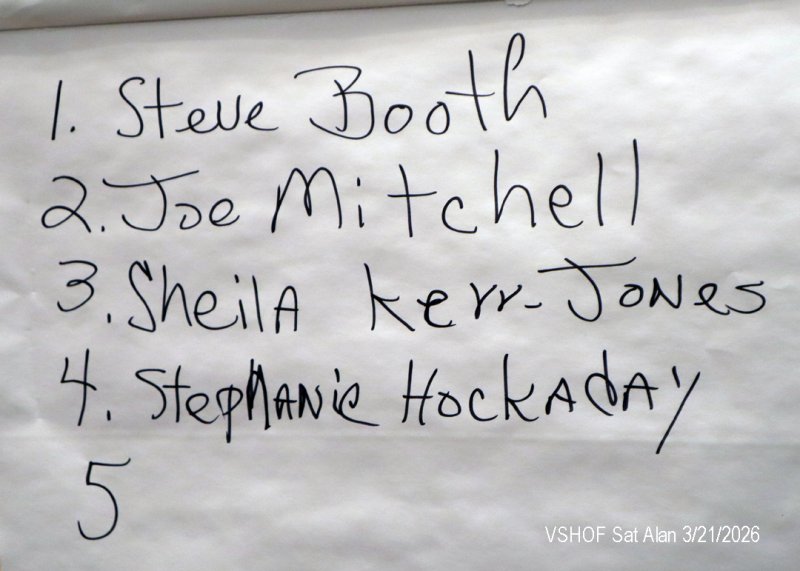 1. Steve Booth
2. Joe Mitchell
3. Sheila Kerr-Jones
4. Stephanie Hockaday
5
VSHOF Sat Alan 3/21/2026